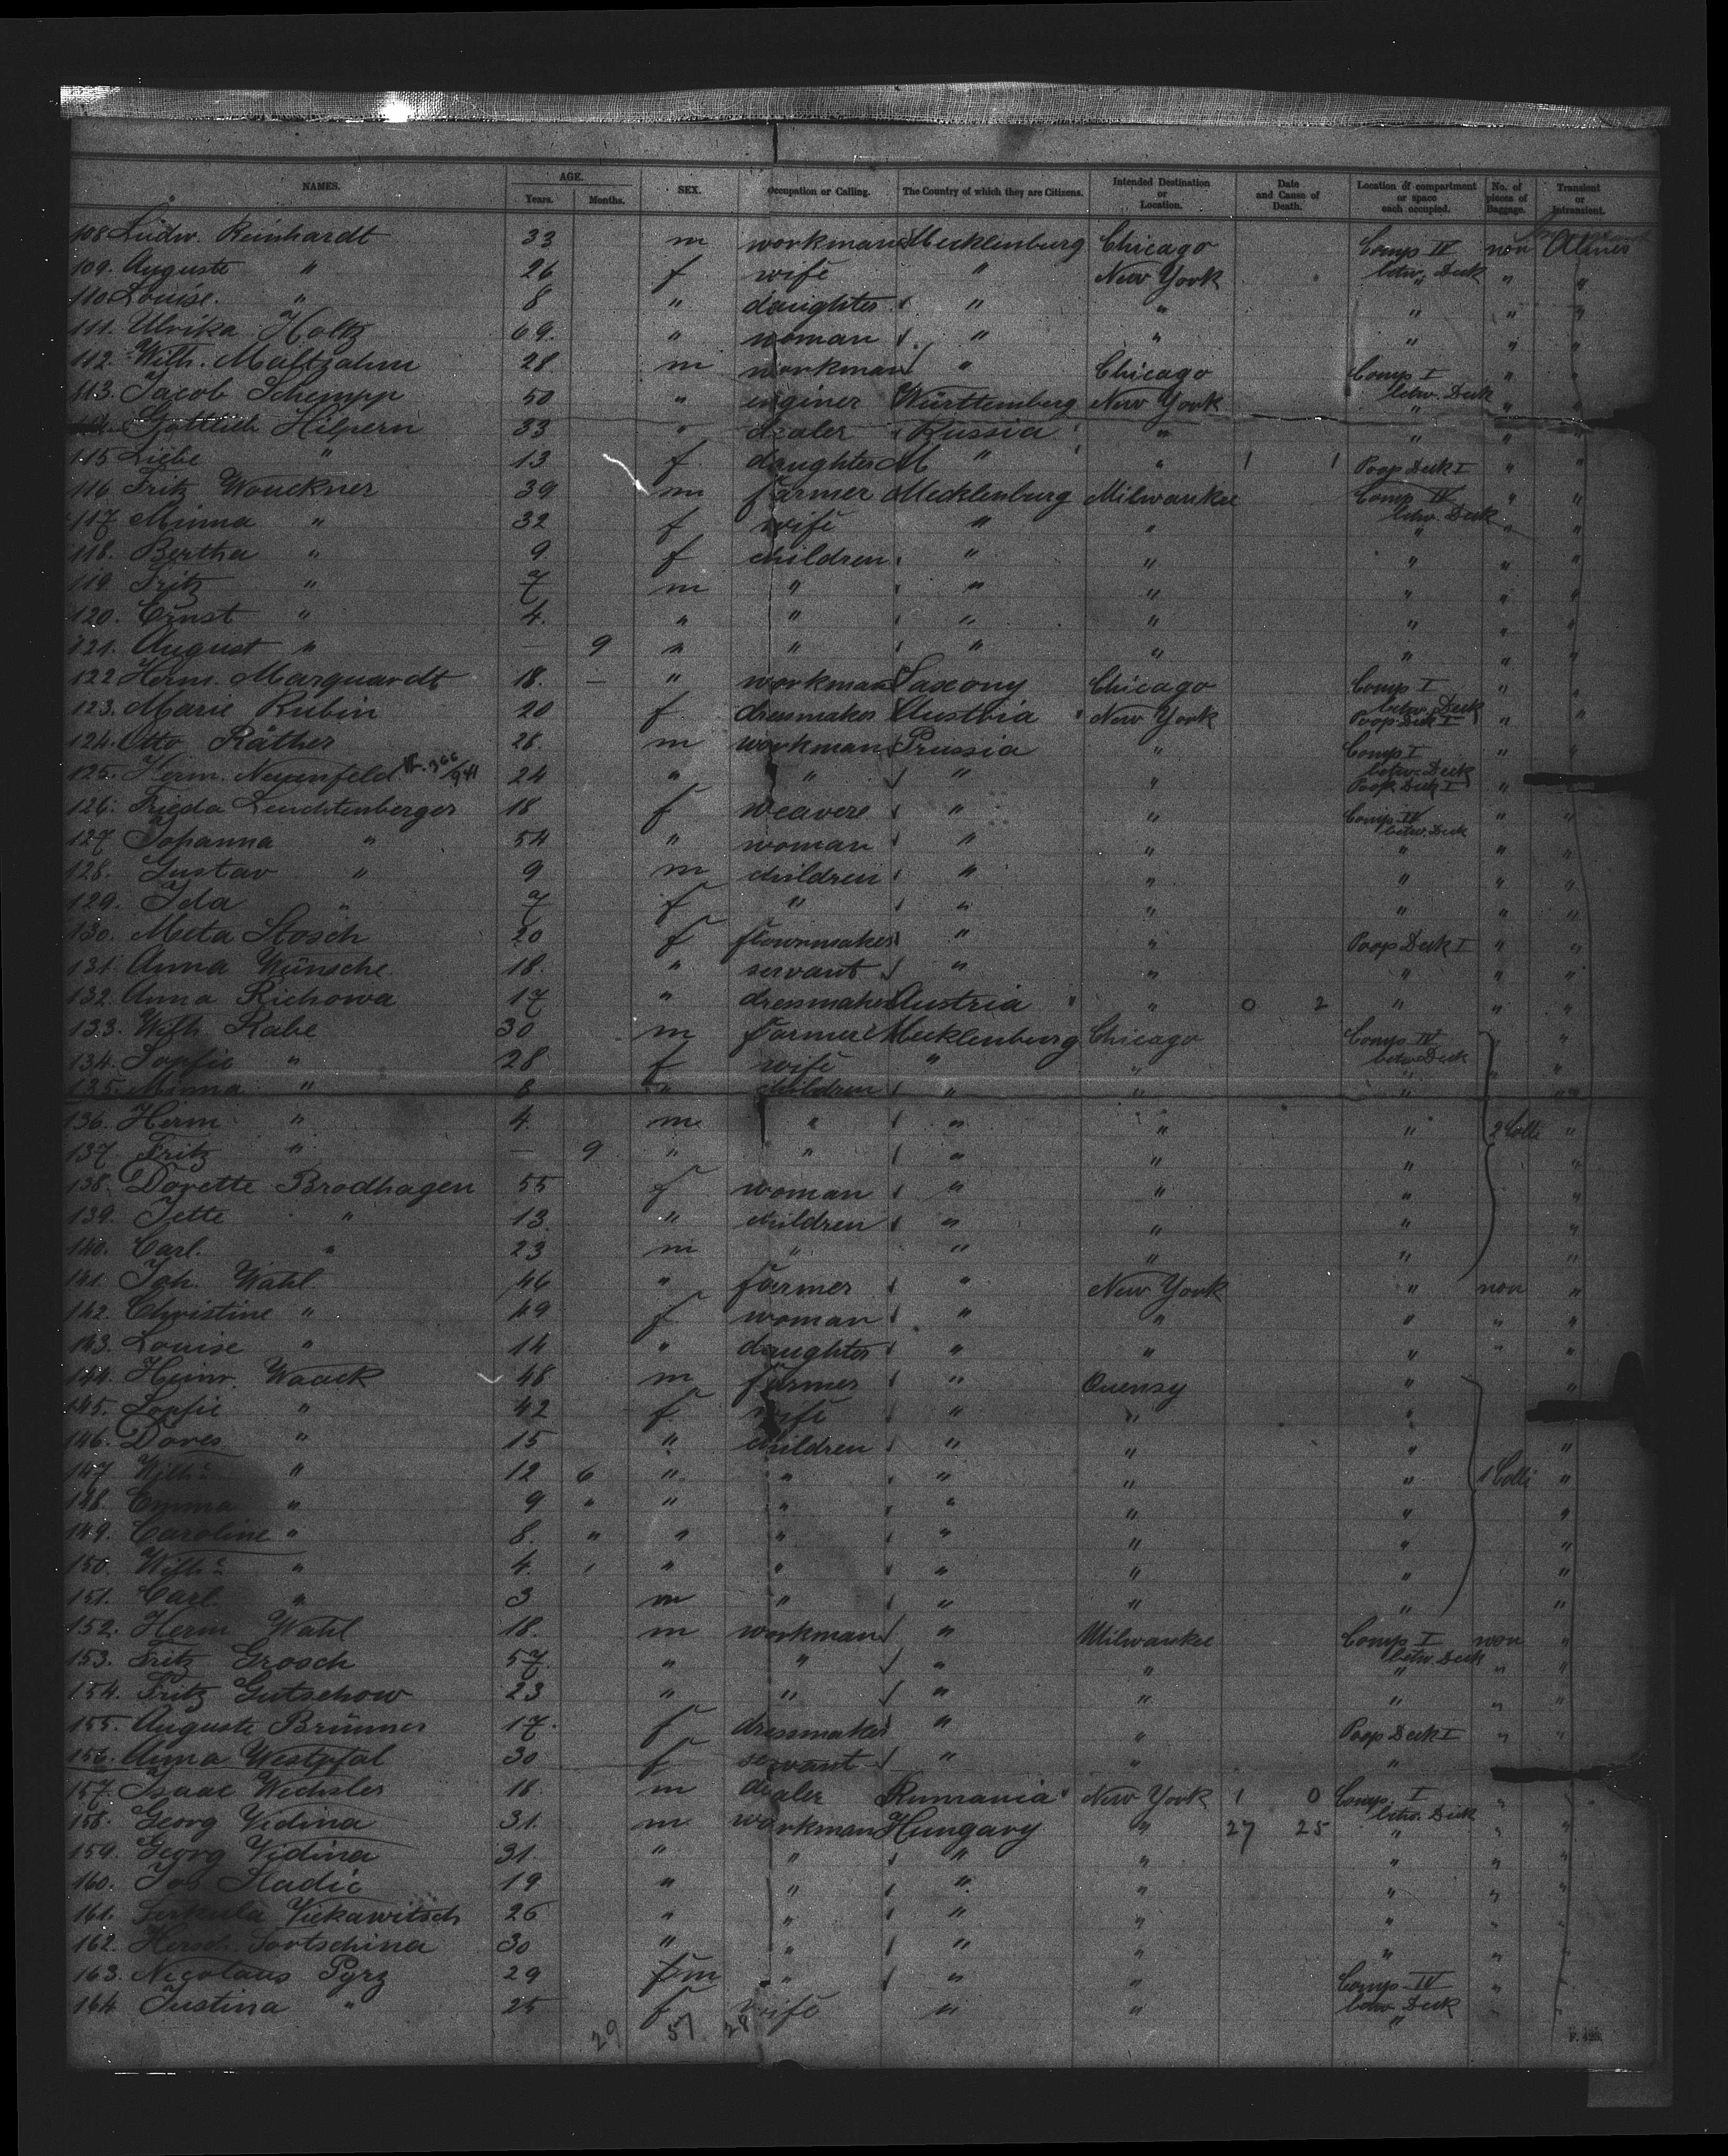 NAMES. AGE. Years. Months. SEX. Occupation or Calling. The Country of which they are Citizens. Intended Destination or Location. Date and Cause of Death. Location of compartment or space each occupied. No. of pieces of Baggage. Transient or Intransient.
108 Ludw. Reinhardt 33 m workman Mecklenburg Chicago Comp IV non
109. Auguste " 26 f wife " New York betw. Deck " "
110 Louise. " 8 " daughter " " " " "
111. Ulrika Holtz 69. " woman " " " " "
112. Wilh. Maltzahn 28 m workman " Chicago Comp I " "
113. Jacob Schempp 50 " enginer Württemberg New York betw. Deck " "
Gottlieb Hilpern 33 " dealer Russia " " " "
115 Liebe " 13 f daughter M " " 1 1 Poop Deck I " "
116 Fritz Wouckner 39 m farmer Mecklenburg Milwaukee Comp IV " "
117 Minna " 32 f wife " " betw. Deck " "
118. Bertha " 9 f children " " " " "
119. Fritz " 7 m " " " " " "
120. Ernst " 4. " " " " " " "
121. August " — 9 " " " " " " "
122 Herm. Marquardt 18. — " workman Saxony Chicago Comp I " "
123. Marie Rubin 20 f dressmaker Austria " New York betw. Deck Poop Deck I " "
124. Otto Räther 28. m workman Prussia " Comp I " "
125. Herm. Neuenfeld 24 " " " " betw. Deck Poop Deck I "
126. Frieda Leuchtenberger 18 f weavere " " Comp IV betw. Deck " "
127 Johanna " 54 " woman " " " " "
128. Gustav " 9 m children " " " " "
129. Ida " 7 f " " " " " "
130. Meta Stosch 20 f flowrmaker " " Poop Deck I " "
131. Anna Wünsche 18. " servant " " " " "
132. Anna Richowa 17 " dressmaker Austria " " 0 2 " " "
133. Wilh. Rabe 30 m farmer Mecklenburg Chicago Comp IV "
134. Sopfie " 28 f wife " " betw. Deck " "
135. Minna " 8 " children " " " "
136. Herm " 4 m " " " " 2 Colli "
137 Fritz " — 9 " " " " " "
138. Dorette Brodhagen 55 f woman " " " "
139. Jette " 13. " children " " " "
140. Carl. " 23 m " " " " "
141. Joh. Wahl 46 " farmer " New York " non "
142. Christine " 49 f woman " " " " "
143. Louise " 14 " daughter " " " " "
144. Heinr. Waack 48 m farmer " Quensy " "
145. Sopfie " 42 f wife " " "
146. Dores " 15 " children " " " "
147 Wilh. " 12 6 " " " " " 1 Colli "
148. Emma " 9 " " " " " " "
149. Caroline " 8. " " " " " " "
150. Wilh. " 4 " " " " " " "
151. Carl " 3 m " " " " "
152. Herm Wahl 18. m workman " Milwaukee Comp I non "
153. Fritz Grosch 57. " " " " betw. Deck " "
154. Fritz Gutschow 23 " " " " " " "
155. Auguste Brümmer 17. f dressmaker " " Poop Deck I " "
156. Anna Westpfal 30 f servant " " "
157. Isaac Wechsler 18. m dealer Rumania " New York 1 0 Comp. I " "
158. Georg Vidina 31. m workman Hungary " 27 25 betw. Deck " "
159. Georg Vidina 31. " " " " " " "
160. Jos Hadic 19 " " " " " " "
161. Vickawitsch 26 " " " " " " "
162. Hersch Tortschina 30 " " " " " " "
163. Nicolaus Pyrz 29 f m " " " Comp IV " "
164 Justina " 25 f wife " " betw. Deck " "
29 57 28
F. 425